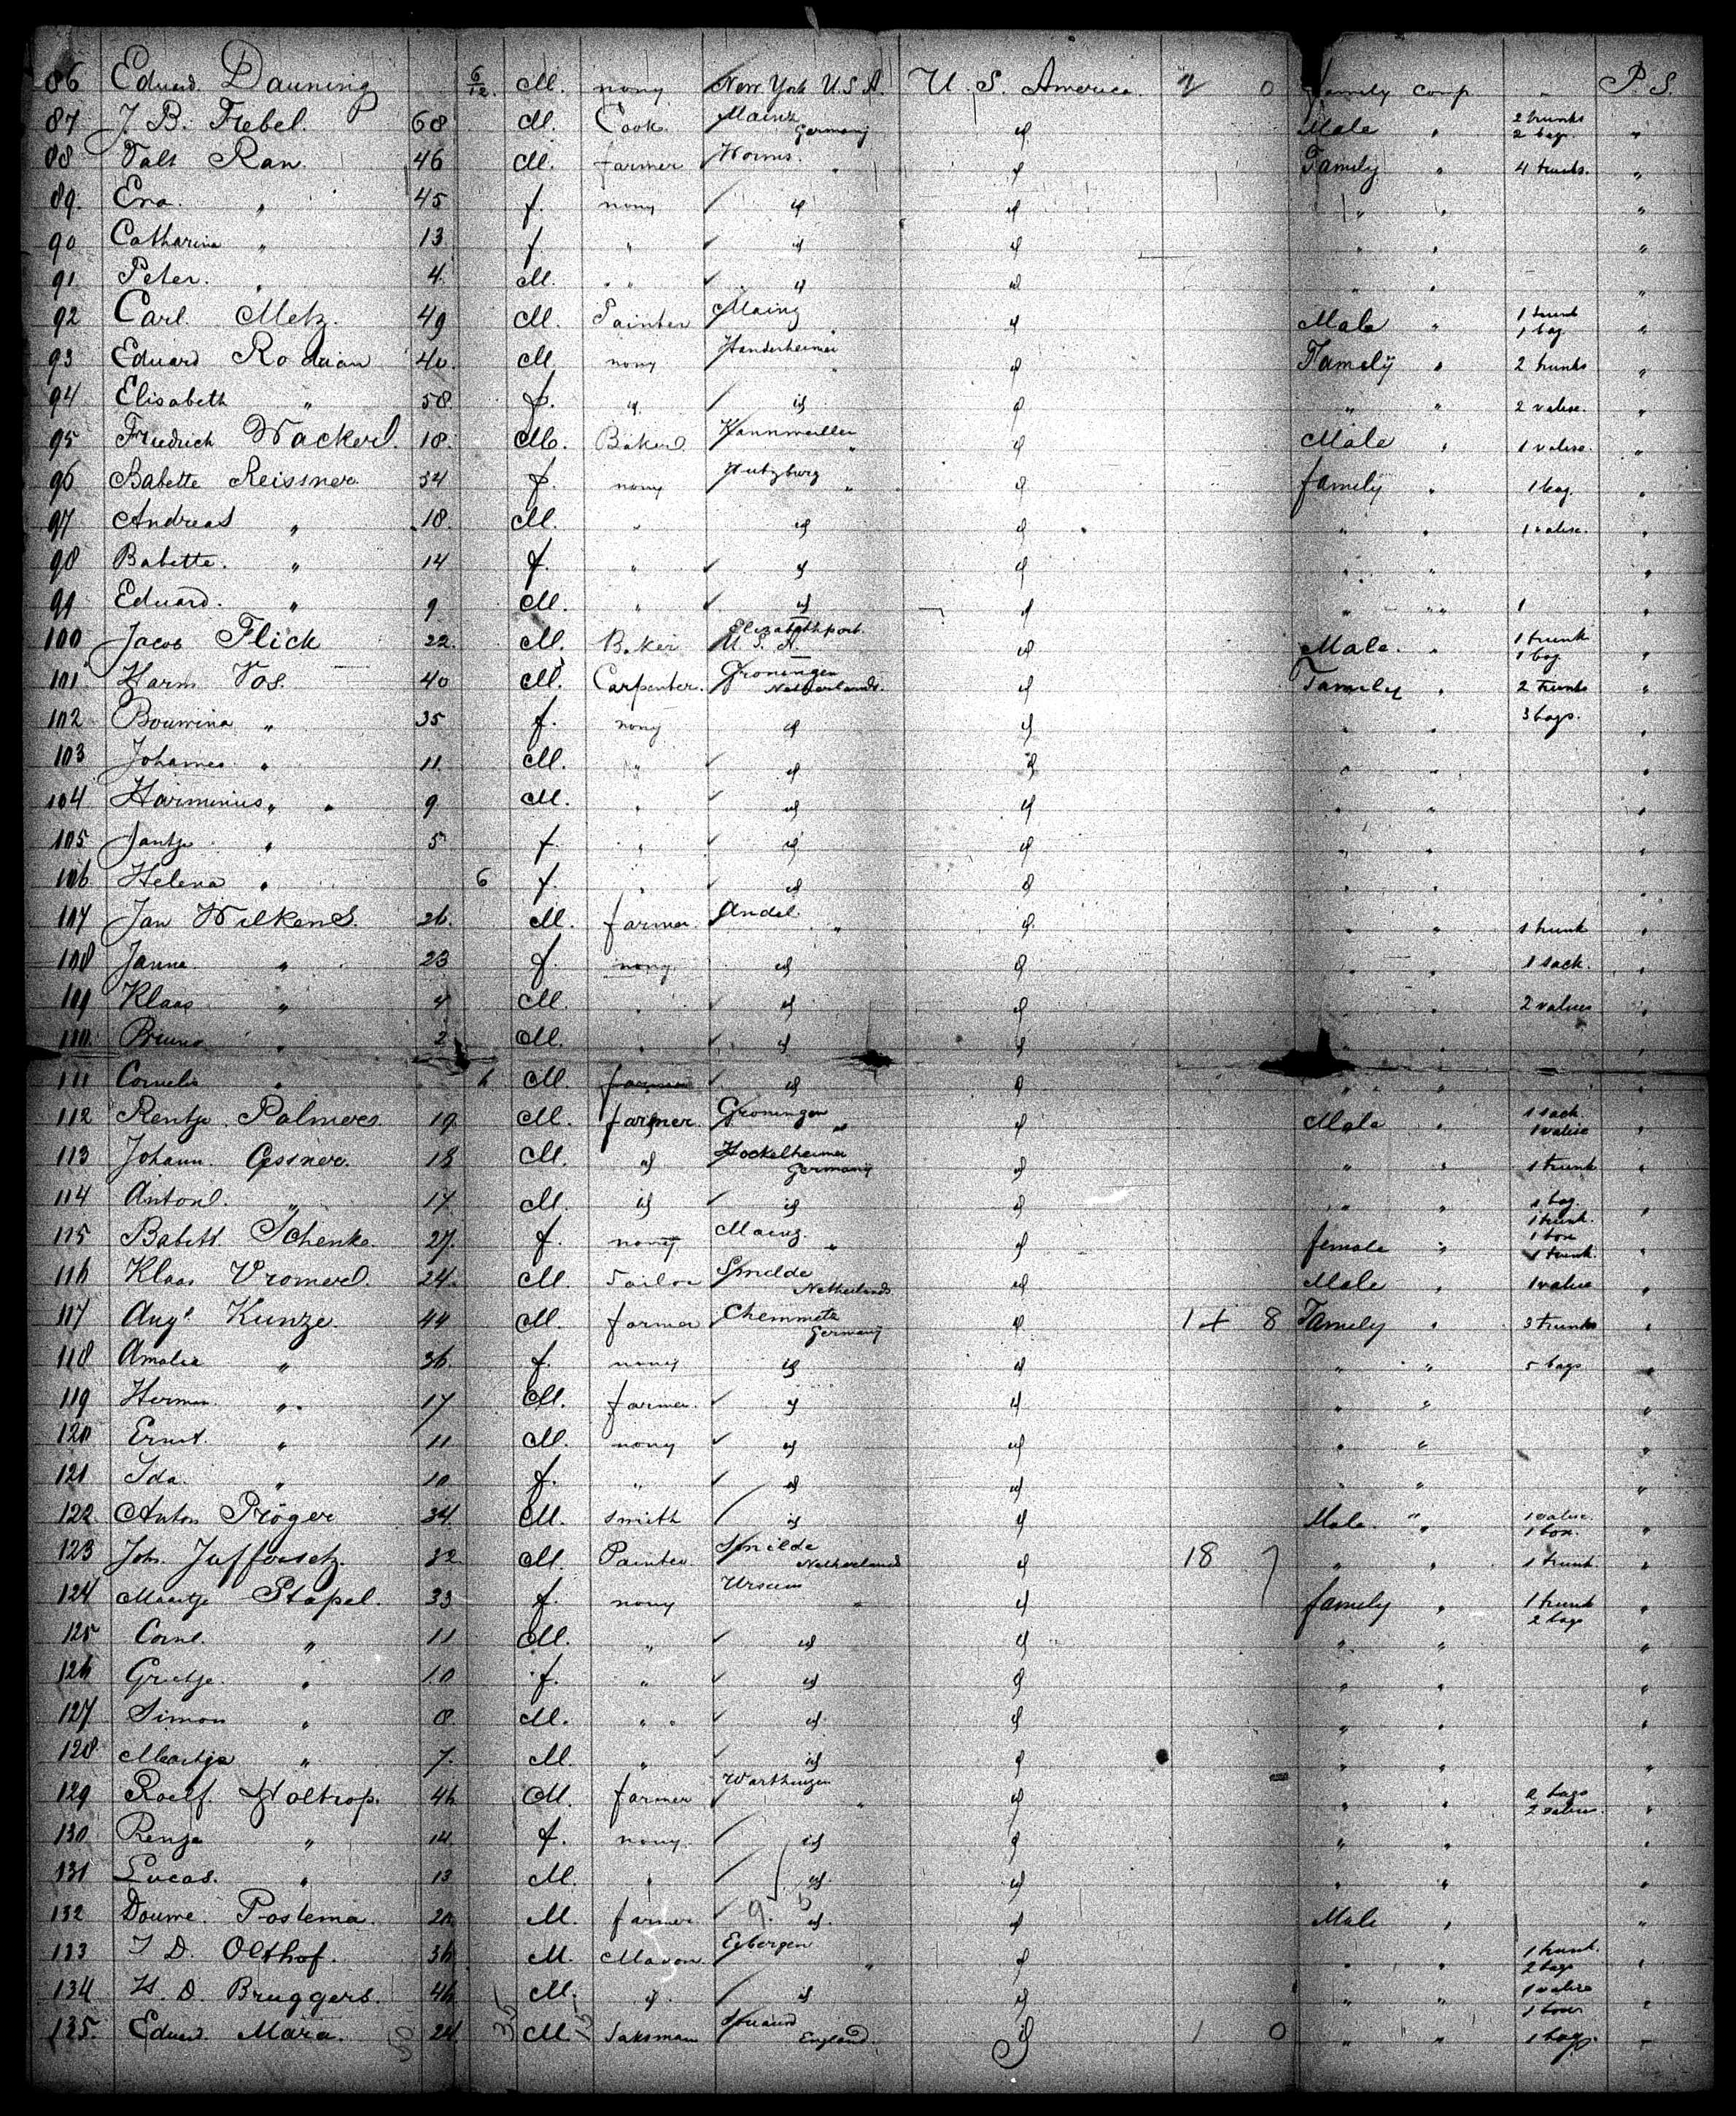 86 Eduard Dauning 6/12 M. nony New York U.S.A. U. S. America 2 0 Family comp " P. S.
87 J. B. Trebel. 68 M. Cook. Mainz Germany id Male " 2 trunks 2 bags "
88 Valt Rau 46 M. farmer Worms. " id Family " 4 trunks. "
89. Eva. " 45 f. nony id id " " "
90 Catharina " 13 f " id id " " "
91 Peter. " 4. M. " id id " " "
92 Carl. Metz. 49 M. Painter Mainz " id Male " 1 trunk 1 bag "
93 Eduard Roduian 40. M. nony " id Family " 2 trunks "
94 Elisabeth " 58. f. id id id " " 2 valise. "
95 Friedrich Wacker. 18. M. Baker " id Male " 1 valise. "
96 Babette Reissner 54 f. nony Wutzburg " id family " 1 bag. "
97 Andreas " 18. M. " id id " " 1 valise. "
98 Babette. " 14 f. " id id " " "
99 Eduard. " 9 M. " id id " " 1 "
100 Jacob Flick 22. M. Baker Elizabethport. U. S. A. id Male. " 1 trunk 1 bag "
101 Harm Vos. 40 M. Carpenter. Groningen Netherlands. id Family " 2 trunks "
102 Bouwina " 35 f. nony id id " " 3 bags. "
103 Johannes " 11. M. " id id " " "
104 Harminius " 9 M. " id id " " "
105 Jantje " 5 f. " id id " " "
106 Helena " 6 f. " id id " " "
107 Jan Wilkens. 26. M. farmer. Andel. " id " " 1 trunk "
108 Janna. " 23 f. nony id id " " 1 sack. "
109 Klaas " 4 M. " id id " " 2 valises "
110. Bruno " 2 M. " id id " " "
111 Cornelis " 6 M. farmer id id " " "
112 Rentje Palmers 19 M. farmer Groningen " id Male " 1 sack. 1 valise "
113 Johann. Gessner. 18 M. id Hockelheimer Germany id " " 1 trunk "
114 Anton. " 17 M. id id id " " 1 bag. 1 trunk. "
115 Babett. Schenke. 27. f. nony Mainz. " id female " 1 box 1 trunk. "
116 Klaas Vromer. 24. M. Tailor Smilde Netherlands id Male " 1 valise "
117 Augt Kunze. 44 M. farmer Chemmetz Germany id 14 8 Family " 3 trunks "
118 Amalia " 36. f. nony id id " " 5 bags "
119 Herman. " 17 M. farmer. id id " " "
120 Ernst. " 11 M. nony id id " " "
121 Ida. " 10 f. " id id " " "
122 Anton Pröger 34. M. smith id id Male. " 1 valise. 1 box. "
123 Joh. 32 M. Painter Smilde Netherlands id 18 7 " " 1 trunk. "
124 Maartje Stapel. 33 f. nony Ursum " id family " 1 trunk 2 bags "
125 Corn. " 11 M. " id id " " "
126 Grietje. " 10 f. " id id " " "
127 Simon " 8. M. " id. id " " "
128. Maartje " 7. M. " id id " " "
129 Roelf. Holtrop. 46. M. farmer " id " " 2 bags 2 valises. "
130 Renje " 14. f. nony. id id " " "
131 Lucas. " 13 M. " id id " " "
132 Douwe. Postema. 20. M. farmer id. id Male " "
133 J. D. Olthof. 36 M. Mason. Eebergen " id " " 1 trunk. 2 bags "
134 H. D. Bruggers. 46 M. id. id id " " 1 valise 1 box "
135. Eduard. Mara. 24 M. England. id 1 0 " " 1 bag. "